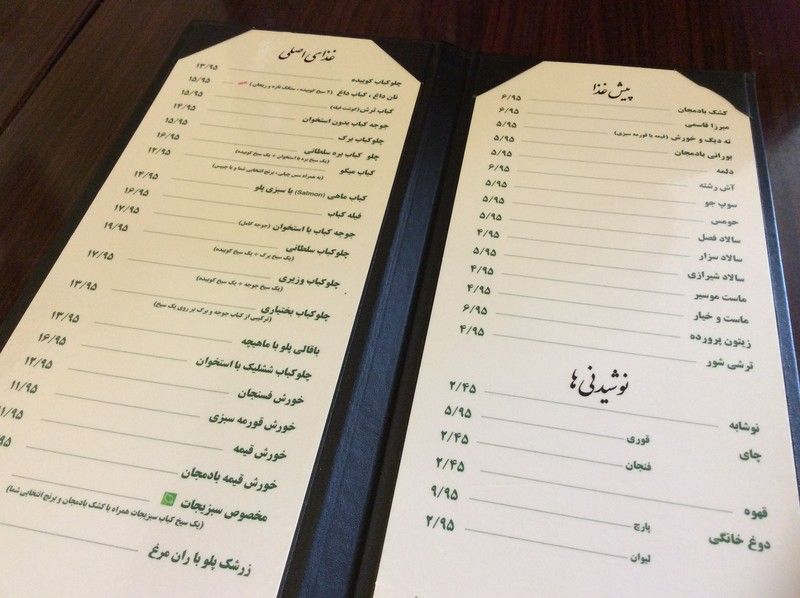 غذای اصلی
چلوکباب کوبیده ۱۳/۹۵
نان داغ ، کباب داغ (۲ سیخ کوبیده ، سنگک تازه و ریحان) ۱۵/۹۵
کباب ترش (گوشت فیله) ۱۵/۹۵
جوجه کباب بدون استخوان ۱۴/۹۵
چلوکباب برگ ۱۵/۹۵
چلو کباب بره سلطانی ۱۶/۹۵
(یک سیخ بره با استخوان + یک سیخ کوبیده)
کباب میگو ۱۳/۹۵
(به همراه سس چیلی، برنج انتخابی شما و یا چیپس)
کباب ماهی (Salmon) با سبزی پلو ۱۴/۹۵
فیله کباب ۱۶/۹۵
جوجه کباب با استخوان (جوجه کامل) ۱۷/۹۵
چلوکباب سلطانی ۱۹/۹۵
(یک سیخ برگ + یک سیخ کوبیده)
چلوکباب وزیری ۱۷/۹۵
(یک سیخ جوجه + یک سیخ کوبیده)
چلوکباب بختیاری ۱۳/۹۵
(ترکیبی از کباب جوجه و برگ بر روی یک سیخ)
باقالی پلو با ماهیچه ۱۳/۹۵
چلوکباب ششلیک با استخوان ۱۶/۹۵
خورش فسنجان ۱۲/۹۵
خورش قورمه سبزی ۱۱/۹۵
خورش قیمه ۱/۹۵
خورش قیمه بادمجان ۹۵
مخصوص سبزیجات
(یک سیخ کباب سبزیجات همراه با کشک بادمجان و برنج انتخابی شما)
زرشک پلو با ران مرغ
پیش غذا
کشک بادمجان ۶/۹۵
میرزا قاسمی ۶/۹۵
ته دیگ و خورش (قیمه یا قورمه سبزی) ۵/۹۵
بورانی بادمجان ۵/۹۵
دلمه ۵/۹۵
آش رشته ۶/۹۵
سوپ جو ۵/۹۵
حومس ۵/۹۵
سالاد فصل ۵/۹۵
سالاد سزار ۴/۹۵
سالاد شیرازی ۵/۹۵
ماست موسیر ۴/۹۵
ماست و خیار ۴/۹۵
زیتون پرورده ۶/۹۵
ترشی شور ۴/۹۵
نوشیدنی ها
نوشابه ۲/۴۵
چای قوری ۵/۹۵
فنجان ۲/۴۵
قهوه ۲/۴۵
دوغ خانگی پارچ ۹/۹۵
لیوان ۲/۹۵